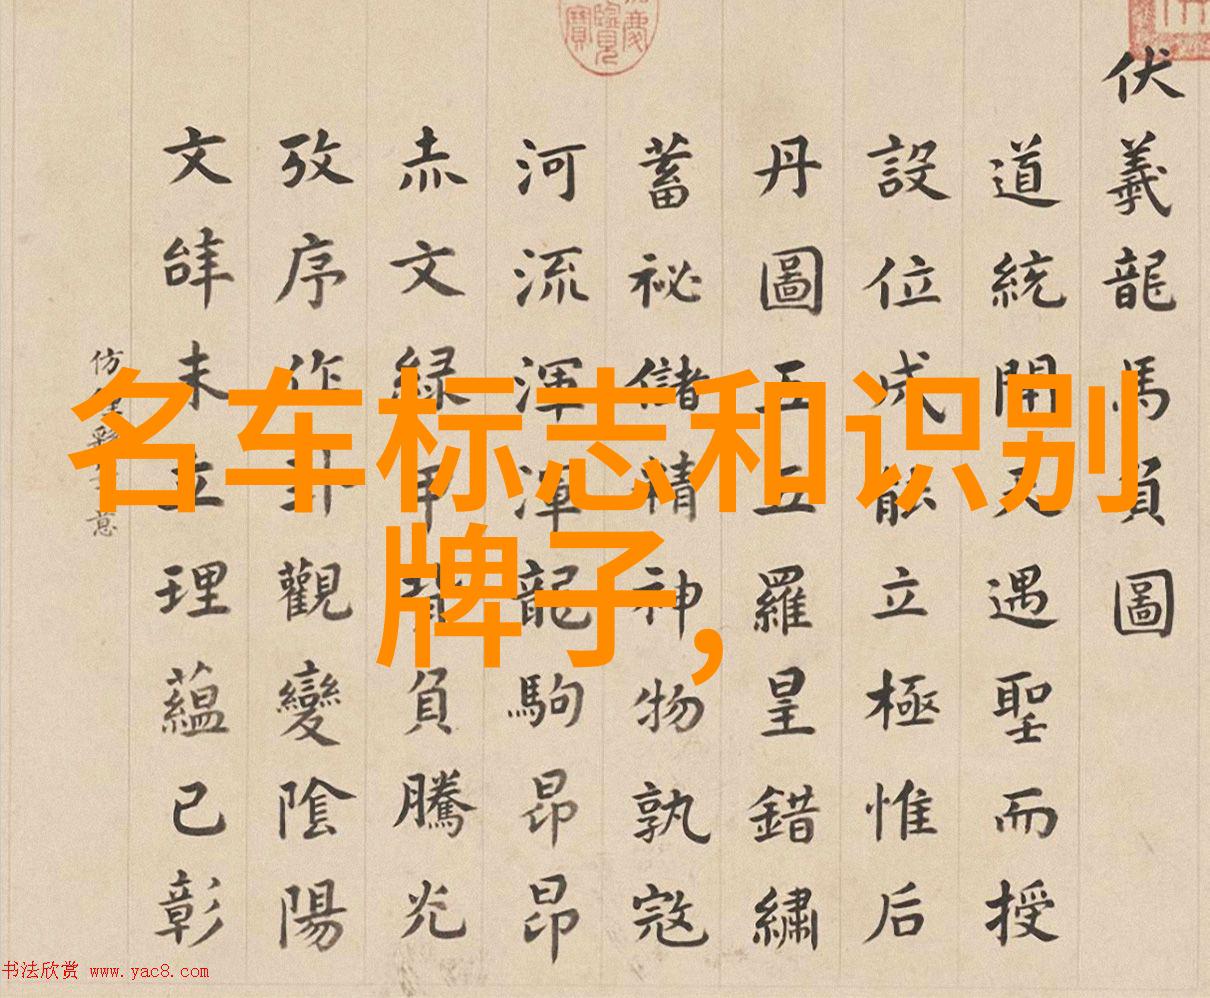 伏羲龍馬負圖
道統開天遇聖而授
設位成能立極惟后
丹圖五五羅皇錯繡
蓄祕儲精神物孰寇
河流渾渾龍駒昂昂
赤文綠字背負騰光
攷序作卦觀變陰陽
文辞未立理蘊已彰
名车标志和识别
牌子,
书法欣赏 www.yac8.com